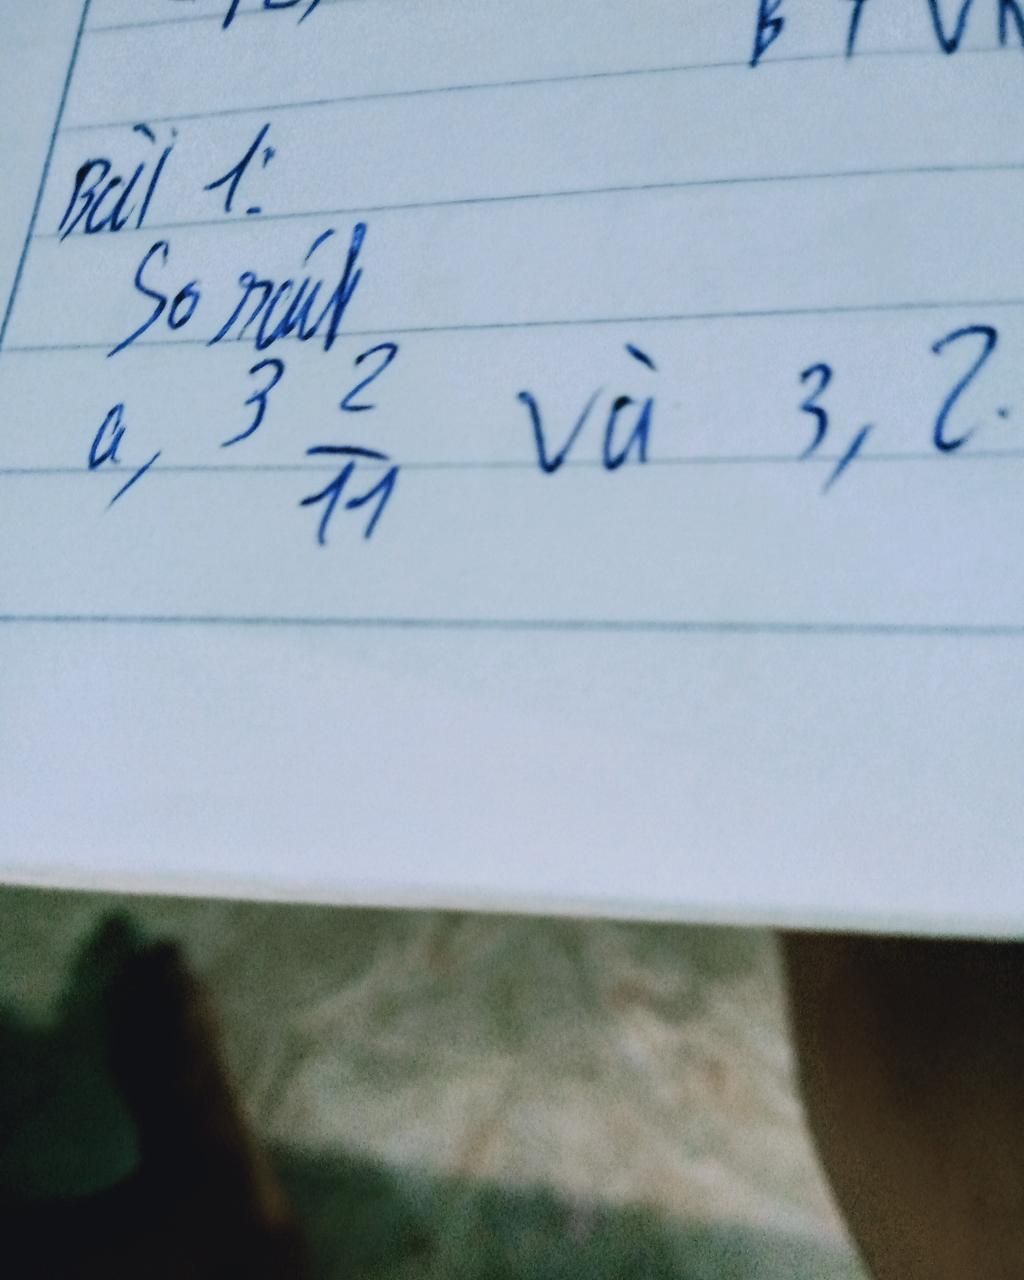 BTVN
Bài 1:
So sánh
a, 3 2/11 và 3,2.